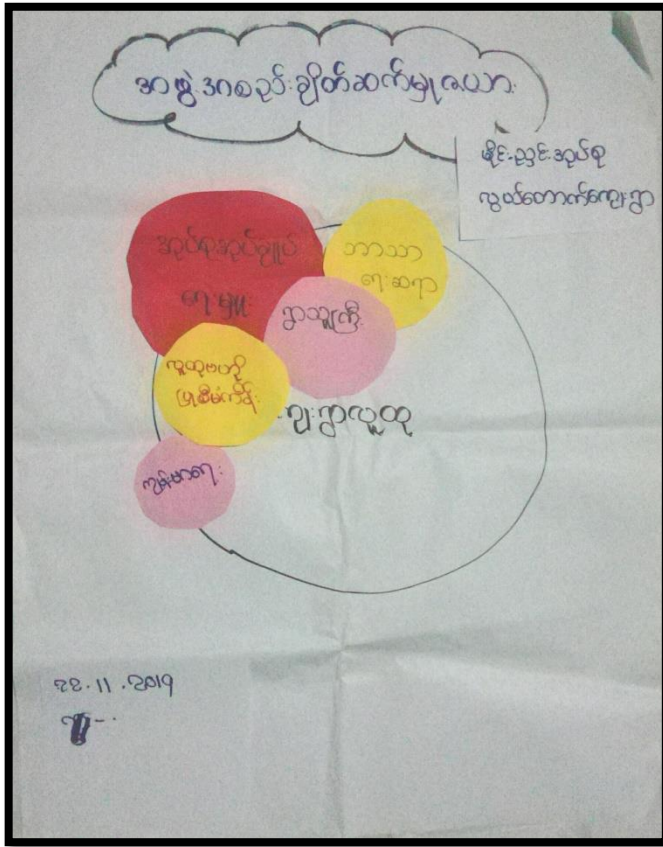 အဖွဲ့အစည်းချိတ်ဆက်မှုဇယား
မိုင်းညှင်းအုပ်စု
လွယ်တောက်ကျေးရွာ
အုပ်စုအုပ်ချုပ်
ရေးမှူး
ဘာသာ
ရေးဆရာ
ရွာသူကြီး
လူထုဗဟို
ပြုစီမံကိန်း
ကျေးရွာလူထု
ကျန်းမာရေး
22.11.2019